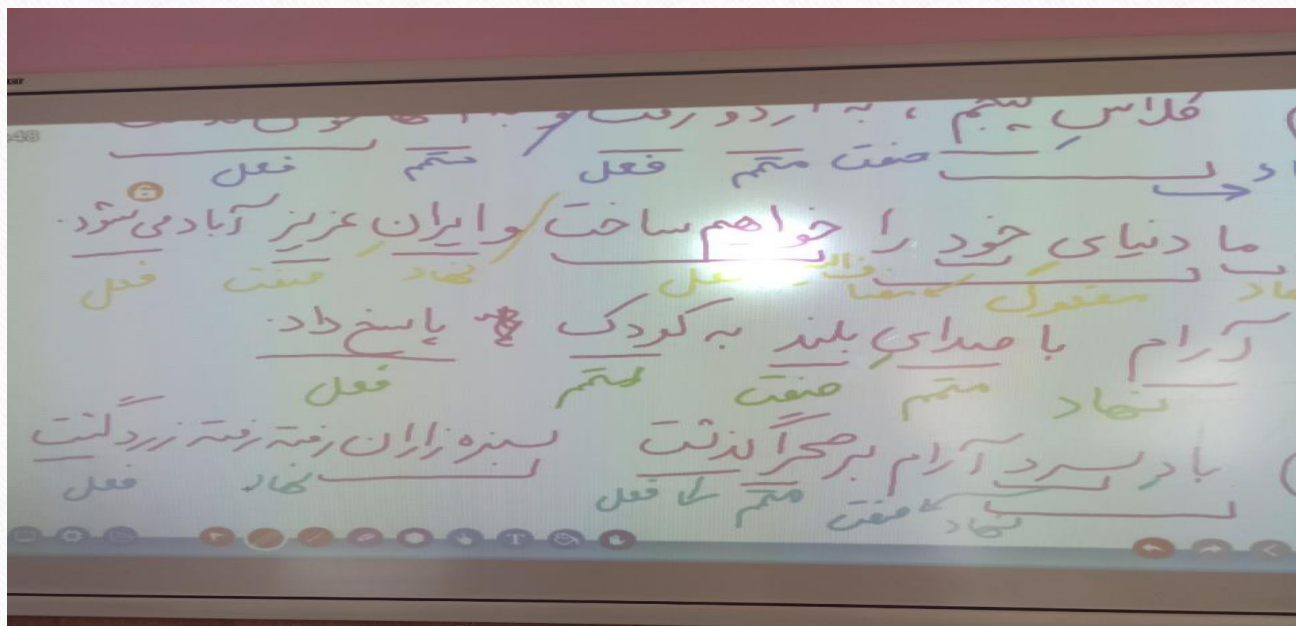 کلاسِ پنجم ، به اردو رفت و به آنها خوش
صفت متمم فعل متمم فعل
ما دنیای خود را خواهیم ساخت و ایران عزیز آباد می‌شود.
مفعول فعل نهاد صفت فعل
آرام با صدای بلند به کودک پاسخ داد.
نهاد متمم صفت متمم فعل
باد سرد آرام بر صحرا گذشت سبزه زاران رفته رفته زرد گشت
نهاد صفت متمم فعل نهاد فعل